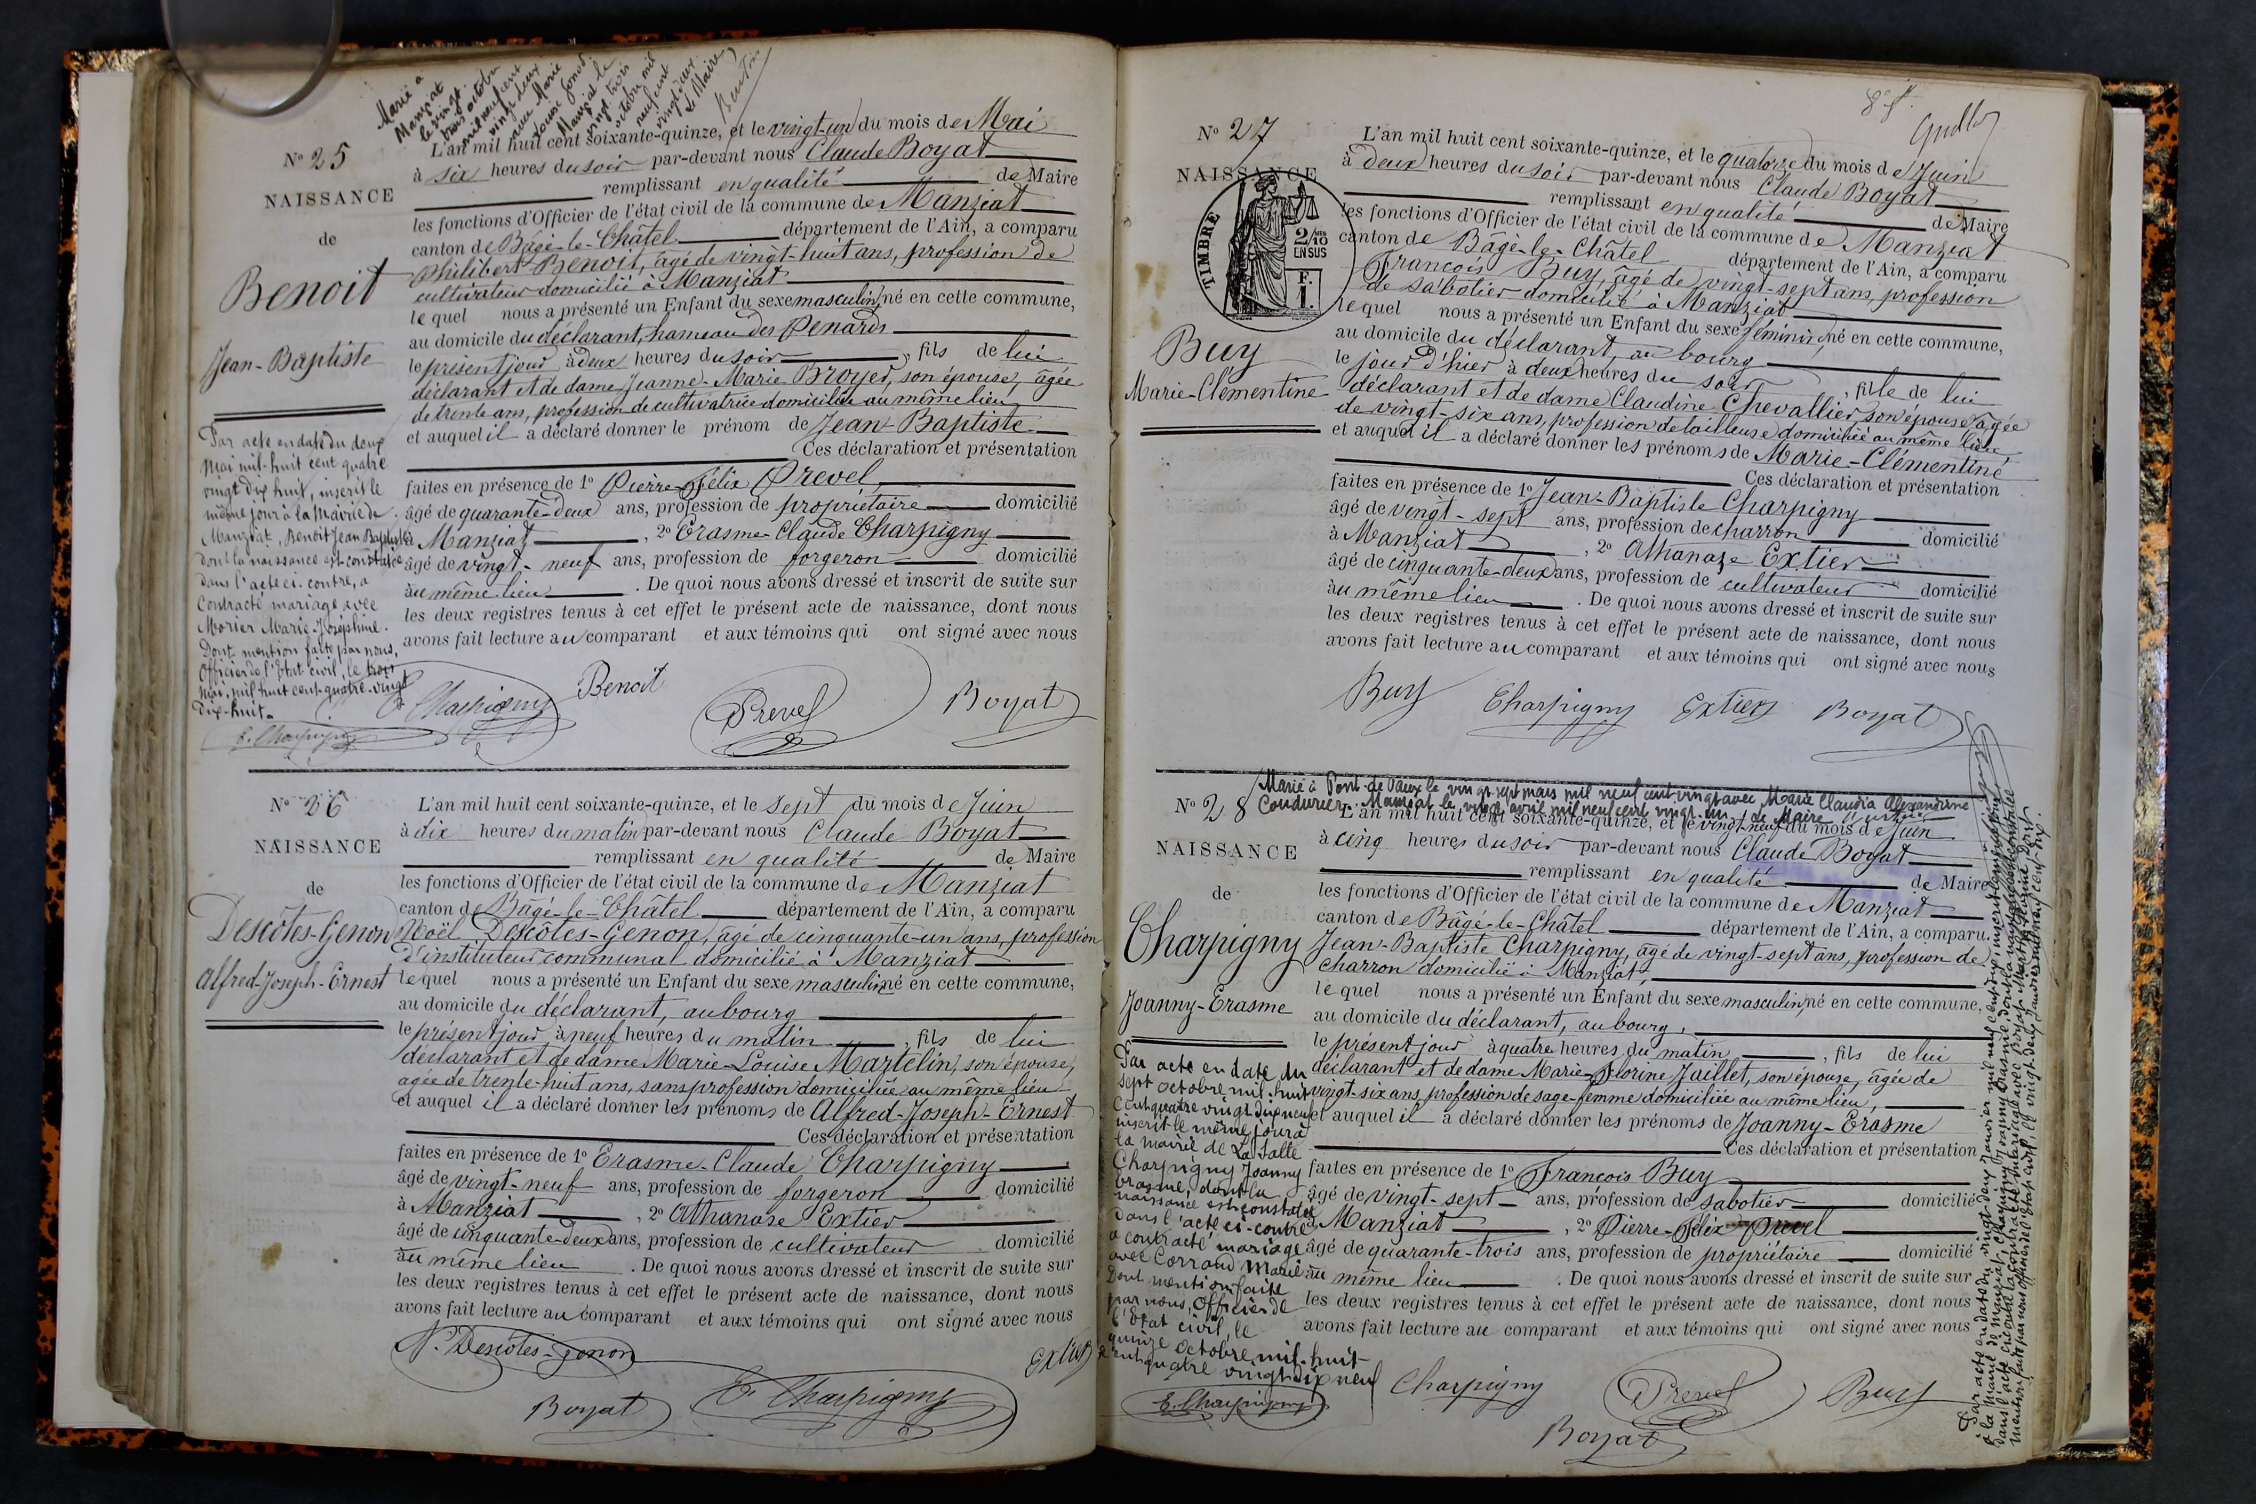 Marié à
Manziat
le vingt
trois octobre
mil neuf cent
vingt deux
avec Marie
Manziat le
vingt trois
octobre mil
neuf cent
vingt deux
Le Maire
N° 25
NAISSANCE
de
Benoit
Jean-Baptiste
L'an mil huit cent soixante-quinze, et le vingt-un du mois de Mai
à six heures du soir par-devant nous Claude Boyat
remplissant en qualité de Maire
les fonctions d'Officier de l'état civil de la commune de Manziat
canton de Bâgé-le-Châtel département de l'Ain, a comparu
Philibert Benoit, âgé de vingt-huit ans, profession de
cultivateur domicilié à Manziat
lequel nous a présenté un Enfant du sexe masculin, né en cette commune,
au domicile du déclarant, hameau des Penards
le présent jour à deux heures du soir, fils de lui
déclarant et de dame Jeanne-Marie Broyer, son épouse, âgée
de trente ans, profession de cultivatrice domiciliée au même lieu
et auquel il a déclaré donner le prénom de Jean-Baptiste
Ces déclaration et présentation
faites en présence de 1° Pierre-Félix Prevel
âgé de quarante-deux ans, profession de propriétaire domicilié
à Manziat, 2° Erasme-Claude Charpigny
âgé de vingt-neuf ans, profession de forgeron domicilié
au même lieu. De quoi nous avons dressé et inscrit de suite sur
les deux registres tenus à cet effet le présent acte de naissance, dont nous
avons fait lecture au comparant et aux témoins qui ont signé avec nous
Par acte en date du deux
Mai mil-huit cent quatre
vingt dix huit, inscrit le
même jour à la Mairie de
Manziat, Benoit Jean Baptiste
dont la naissance est constatée
dans l'acte ci-contre, a
contracté mariage avec
Morier Marie-Joséphine.
Dont mention faite par nous,
Officier de l'Etat civil, le trois
Mai, mil huit cent quatre-vingt
dix-huit.
E. Charpigny
E. Charpigny Benoit Prevel Boyat
N° 26
NAISSANCE
de
Descôtes-Genon
Alfred-Joseph-Ernest
L'an mil huit cent soixante-quinze, et le sept du mois de Juin
à dix heures du matin par-devant nous Claude Boyat
remplissant en qualité de Maire
les fonctions d'Officier de l'état civil de la commune de Manziat
canton de Bâgé-le-Châtel département de l'Ain, a comparu
Noël Descôtes-Genon, âgé de cinquante-un ans, profession
d'instituteur communal domicilié à Manziat
lequel nous a présenté un Enfant du sexe masculin, né en cette commune,
au domicile du déclarant, au bourg
le présent jour à neuf heures du matin, fils de lui
déclarant et de dame Marie-Louise Martelin, son épouse,
âgée de trente-huit ans, sans profession domiciliée au même lieu
et auquel il a déclaré donner les prénoms de Alfred-Joseph-Ernest
Ces déclaration et présentation
faites en présence de 1° Erasme-Claude Charpigny
âgé de vingt-neuf ans, profession de forgeron domicilié
à Manziat, 2° Athanase Extier
âgé de cinquante-deux ans, profession de cultivateur domicilié
au même lieu. De quoi nous avons dressé et inscrit de suite sur
les deux registres tenus à cet effet le présent acte de naissance, dont nous
avons fait lecture au comparant et aux témoins qui ont signé avec nous
N. Descôtes-Genon Extier
Boyat E. Charpigny
N° 27
NAISSANCE
TIMBRE
2/10
EN SUS
F.
1.
Buy
Marie-Clémentine
L'an mil huit cent soixante-quinze, et le quatorze du mois de Juin
à deux heures du soir par-devant nous Claude Boyat
remplissant en qualité de Maire
les fonctions d'Officier de l'état civil de la commune de Manziat
canton de Bâgé-le-Châtel département de l'Ain, a comparu
François Buy, âgé de vingt-sept ans, profession
de sabotier domicilié à Manziat
lequel nous a présenté un Enfant du sexe féminin, né en cette commune,
au domicile du déclarant, au bourg
le jour d'hier à deux heures du soir, fille de lui
déclarant et de dame Claudine Chevallier son épouse âgée
de vingt-six ans, profession de tailleuse domiciliée au même lieu,
et auquel il a déclaré donner les prénoms de Marie-Clémentine
Ces déclaration et présentation
faites en présence de 1° Jean-Baptiste Charpigny
âgé de vingt-sept ans, profession de charron domicilié
à Manziat, 2° Athanaze Extier
âgé de cinquante-deux ans, profession de cultivateur domicilié
au même lieu. De quoi nous avons dressé et inscrit de suite sur
les deux registres tenus à cet effet le présent acte de naissance, dont nous
avons fait lecture au comparant et aux témoins qui ont signé avec nous
Buy Charpigny Extier Boyat
Marié à Pont-de-Vaux le vingt sept mars mil neuf cent vingt avec Marie Claudia Alexandrine
Coudurier. Manziat le vingt avril mil neuf cent vingt-un. Le Maire
N° 28
NAISSANCE
de
Charpigny
Joanny-Erasme
L'an mil huit cent soixante-quinze, et le vingt-neuf du mois de Juin
à cinq heures du soir par-devant nous Claude Boyat
remplissant en qualité de Maire
les fonctions d'Officier de l'état civil de la commune de Manziat
canton de Bâgé-le-Châtel département de l'Ain, a comparu
Jean-Baptiste Charpigny, âgé de vingt-sept ans, profession de
charron domicilié à Manziat,
lequel nous a présenté un Enfant du sexe masculin, né en cette commune,
au domicile du déclarant, au bourg,
le présent jour à quatre heures du matin, fils de lui
déclarant et de dame Marie-Florine Jaillet, son épouse, âgée de
vingt-six ans, profession de sage-femme domiciliée au même lieu,
et auquel il a déclaré donner les prénoms de Joanny-Erasme
Ces déclaration et présentation
faites en présence de 1° François Buy
âgé de vingt-sept ans, profession de sabotier domicilié
à Manziat, 2° Pierre-Félix Prevel
âgé de quarante-trois ans, profession de propriétaire domicilié
au même lieu. De quoi nous avons dressé et inscrit de suite sur
les deux registres tenus à cet effet le présent acte de naissance, dont nous
avons fait lecture au comparant et aux témoins qui ont signé avec nous
Par acte en date du
sept octobre mil-huit
cent quatre vingt dix neuf
inscrit le même jour à
la mairie de La Salle
Charpigny Joanny
Erasme, dont la
naissance est constatée
dans l'acte ci-contre
a contracté mariage
avec Corrand Marie
Dont mention faite
par nous, Officier de
l'Etat civil, le
quinze octobre mil-huit
cent quatre vingt dix neuf
E. Charpigny
Charpigny Prevel Buy
Boyat
Par acte en date du vingt-deux Janvier mil neuf cent dix, inscrit le même jour
à la Mairie de Manziat, Charpigny Joanny Erasme, dont la naissance est constatée
dans l'acte ci-contre a contracté mariage avec
mention faite par nous officier de l'Etat civil, le vingt-deux Janvier mil neuf cent dix.